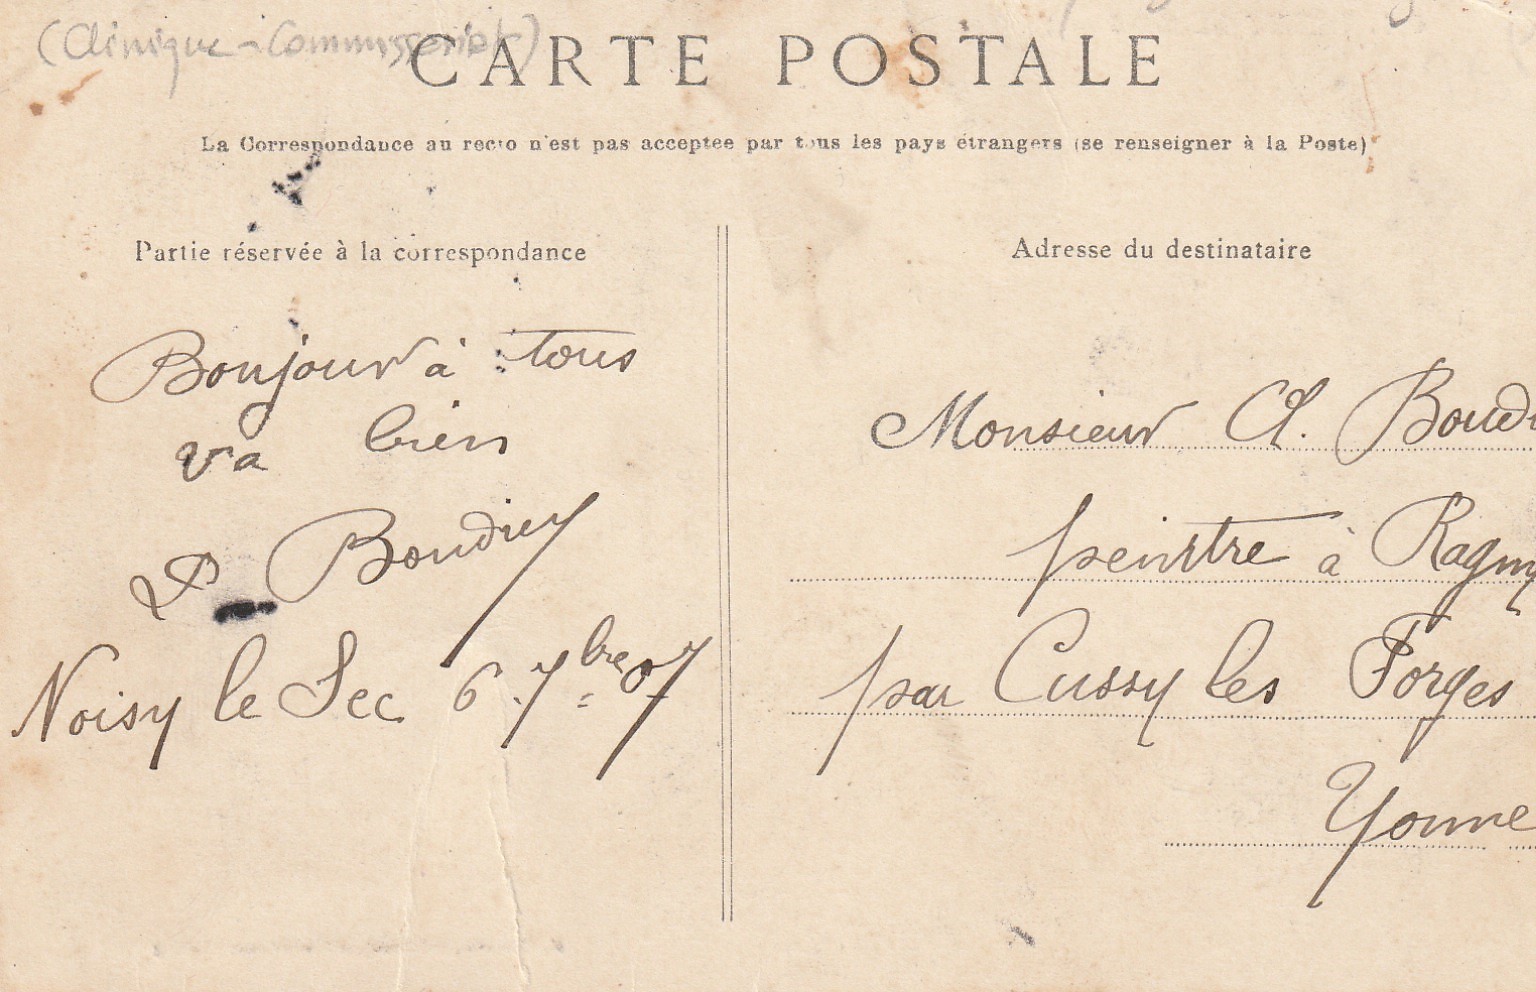 (Clinique - Commissariat)
CARTE POSTALE
La Correspondance au recto n'est pas acceptee par tous les pays étrangers (se renseigner à la Poste)
Partie réservée à la correspondance
Bonjour à tous
va bien
Boudrey
Noisy le Sec 6 7bre 07
Adresse du destinataire
Monsieur Cl. Boud
peintre à Ragny
par Cussy les Forges
Yonne